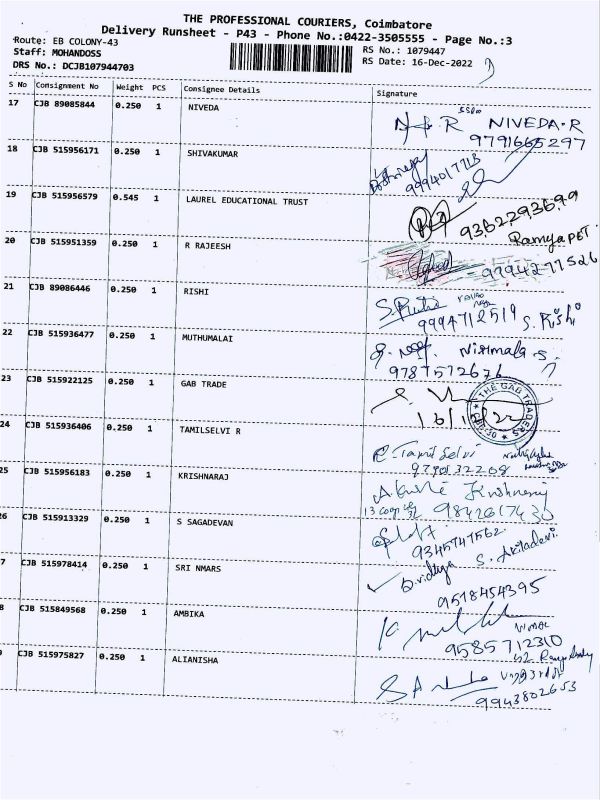 THE PROFESSIONAL COURIERS, Coimbatore
Delivery Runsheet - P43 - Phone No.:0422-3505555 - Page No.:3
Route: EB COLONY-43
RS No.: 1079447
Staff: MOHANDOSS
RS Date: 16-Dec-2022
DRS No.: DCJB107944703
S No Consignment No Weight PCS Consignee Details Signature
17 CJB 89085844 0.250 1 NIVEDA
NIVEDA.R
9791665297
18 CJB 515956171 0.250 1 SHIVAKUMAR
9994017713
19 CJB 515956579 0.545 1 LAUREL EDUCATIONAL TRUST
9362293699
Ramya PET
20 CJB 515951359 0.250 1 R RAJEESH
9794277526
21 CJB 89086446 0.250 1 RISHI
9994712519 S. Rishi
22 CJB 515936477 0.250 1 MUTHUMALAI
Nirimala S.
9787572676
23 CJB 515922125 0.250 1 GAB TRADE
THE GAB TRADERS
24 CJB 515936406 0.250 1 TAMILSELVI R
9790132208
25 CJB 515956183 0.250 1 KRISHNARAJ
9842617430
26 CJB 515913329 0.250 1 S SAGADEVAN
9345747562
S. Akiladevi
7 CJB 515978414 0.250 1 SRI NMARS
D.vidhya
9518454395
8 CJB 515849568 0.250 1 AMBIKA
9585712310
9 CJB 515975827 0.250 1 ALIANISHA
9943802653